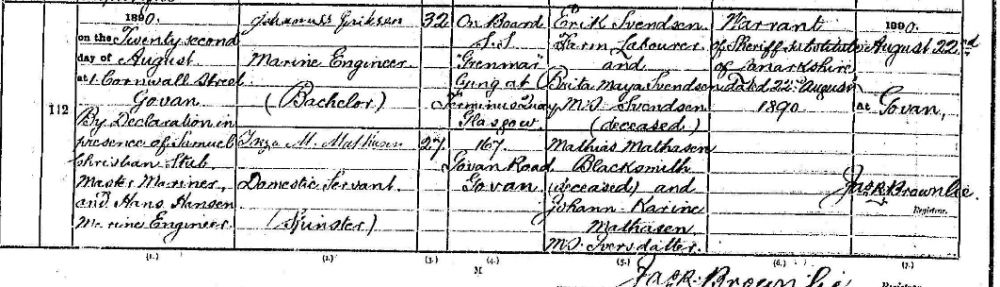 112
1890.
on the Twenty second
day of August
at 1. Cornwall Street
Govan
By Declaration in
presence of Samuel
Christian Stub
Master Mariner,
and Hans Hansen
Marine Engineer
(1.)
Johannes Erikson
Marine Engineer
(Bachelor)
Inga M. Mathisen
Domestic Servant.
(Spinster)
(2.)
32
27
(3.)
On Board
S.S
Grenmar
Lying at
Terminus Quay
Glasgow.
167.
Govan Road.
Govan
(4.)
M
Erik Svendsen
Farm Labourer
and
Brita Maya Svendsen
M.S. Svendsen
(deceased)
Mathias Mathasen
Blacksmith
(deceased) and
Johann Karine
Mathasen
M.S. Iversdatter.
(5.)
Warrant
of Sheriff Substitute
of Lanarkshire,
dated 22nd August
1890
(6.)
1890.
August 22nd
at Govan,
Jas R. Brownlie.
Registrar.
(7.)
Jas R. Brownlie
Registrar